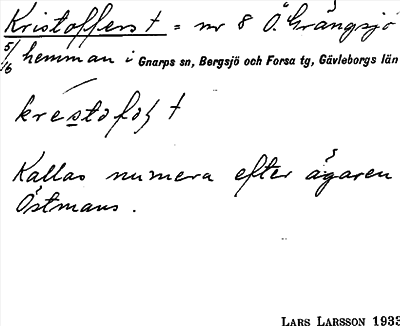 Kristoffers † = nr 8 Ö. Grängsjö
5/6 hemman i Gnarps sn, Bergsjö och Forsa tg, Gävleborgs län
Kallas numera efter ägaren
Östmans.
LARS LARSSON 1933